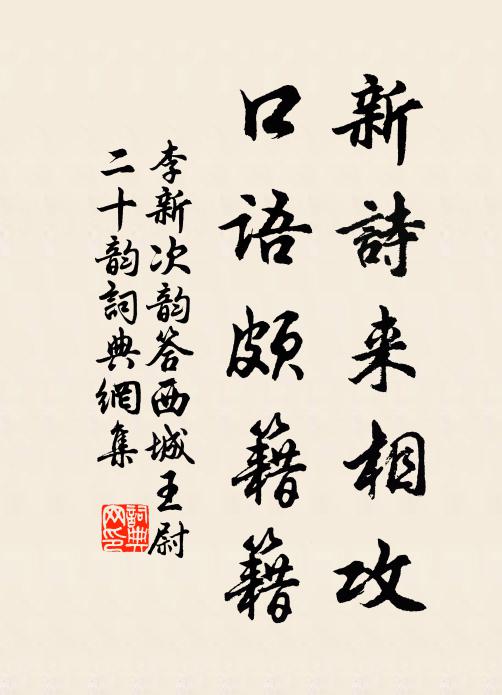 新詩来相攻
口語頗籍籍
李新次韵答西城王尉
二十韵詞典網集
詞典
网印